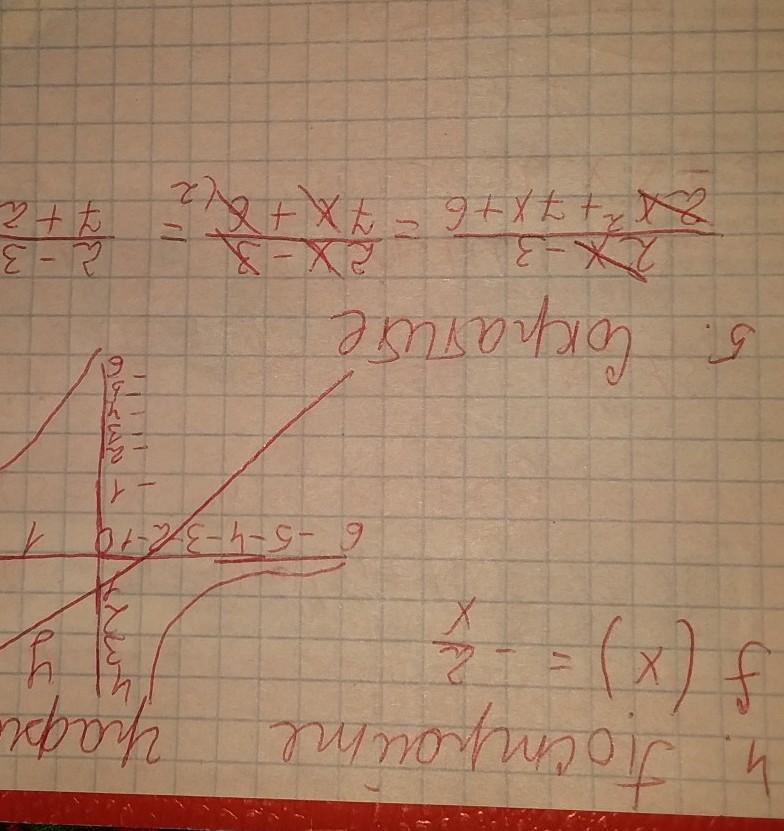 4. Построите графи
f(x) = - 2/x
y
4
3
2
1
6 -5 -4 -3 -2 -1 0 1
-1
-2
-3
-4
-5
-6
5. Сократите
2x - 3 / 2x² + 7x + 6 = 2x - 3 / 7x + 6(2 = 2 - 3 / 7 + 2